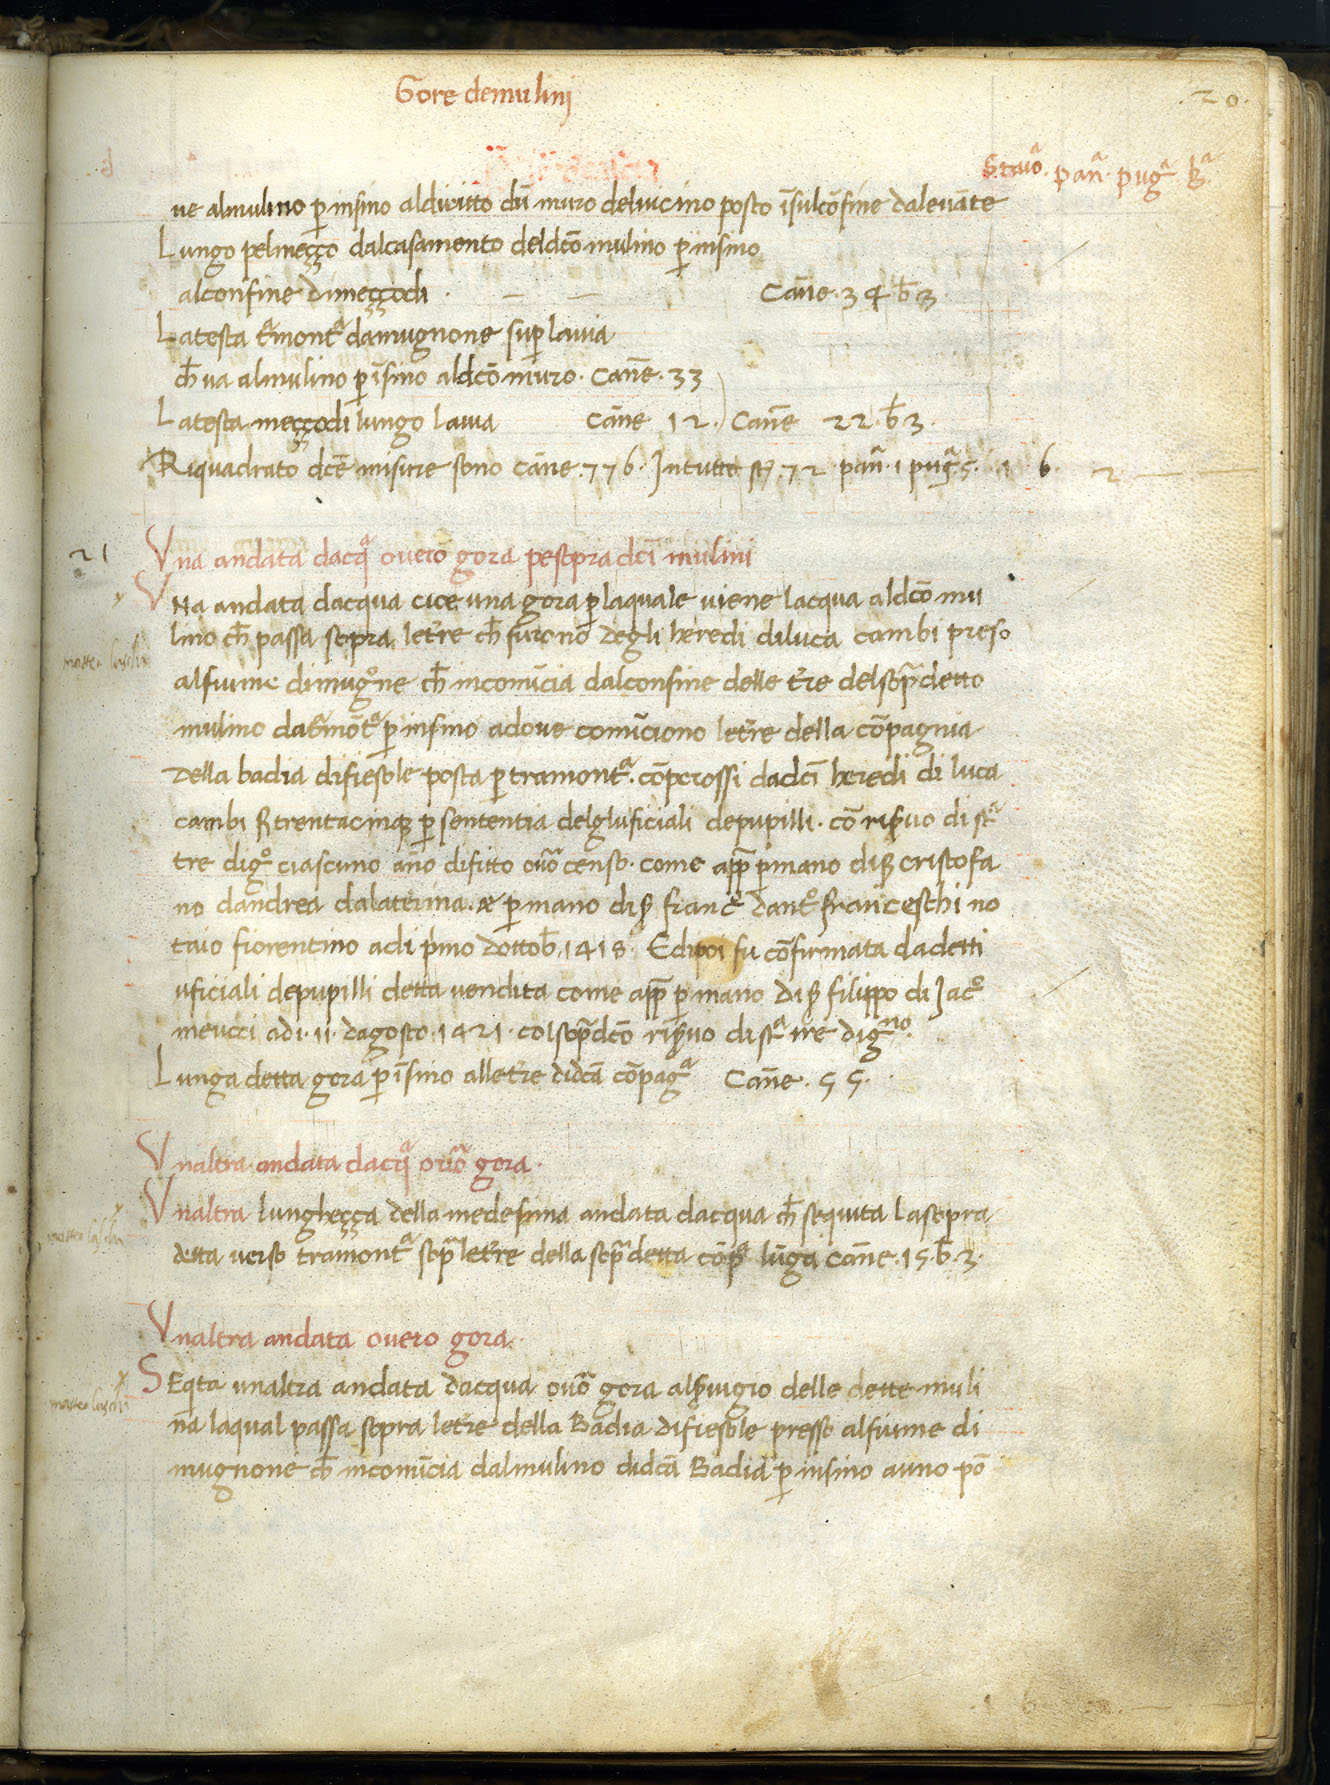 Gore demulinj
.20.
Staiora. panª. pugª. Bª.
ue almulino p̱ insino aldiritto dũ muro deluicino posto ĩsulcõfine daleuãte
Lungo pelmeççо dalcasamento deldcõ mulino p̱ insino
alconfine dimeççodi . — — Cãne. 34 b̄ 3
Latesta tᵃmontᵃ damugnone sup̱ lauia
ch̄ ua almulino p̱ ĩsino aldcõ muro. Cãne. 33
Latesta meççodi lungo lauia Cãne 12. Cãne 22. b̄ 3.
Riquadrato dcẽ misure sono cãne. 776. Jntutto st̃. 72 pañ. 1 pugᵃ. 5. 1 6. 2 —
21
Vna andata dacqᵃ ouero gora pesopra dcĩ mulini
Vna andata dacqua cioe una gora p̱ laquale uiene lacqua aldcõ mu
lino ch̄ passa sopra letr̃e ch̄ furono degli heredi diluca cambi preso
matteo
alfiume dimugᵒne ch̄ incomĩcia dalconfine delle tr̃e delsop̃detto
mulino datᵃmõtᵃ p̱ insino adoue comĩciono letr̃e della cõpagnia
della badia difiesole posta p̱ tramontᵃ. cõperossi dadcĩ heredi di luca
cambi f. trentacinqȝ p̱ sententia delgluficiali depupilli. cõ rip̱uo di stᵃ
tre digᵒ ciascuno año difitto ouõ censo. come app̃ p̱mano diß cristofa
no dandrea dalaterina. & p̱ mano diß franᶜᵒ dantᵒ franceschi no
taio fiorentino adi p̃mo dottob̄. 1418. Edipoi fu cõfirmata dadetti
vficiali depupilli detta uendita come app̃ p̱ mano diß filippo di Jacᵒ
meucci adi. 11. dagosto. 1421. colsop̃dcõ rip̱uo di stᵃ tre digⁿᵒ.
Lunga detta gora p̱ ĩsino alletr̃e didcã cõpagᵃ Cãne. 55.
Vnaltra andata dacqᵃ ouõ gora.
Vnaltra lungheçça della medesima andata dacqua ch̄ sequita lasopra
matteo
detta uerso tramontᵃ sop̃ letr̃e della sop̃detta cõpᵃ lũga cãne. 15. b̄. 3.
Vnaltra andata ouero gora.
SEqta unaltra andata dacqua ouõ gora alßuigio delle dette muli
matteo
na laqual passa sopra letr̃e della Badia difiesole presso alfiume di
mugnone ch̄ incomĩcia dalmulino didcã Badia p̱ insino auno põ